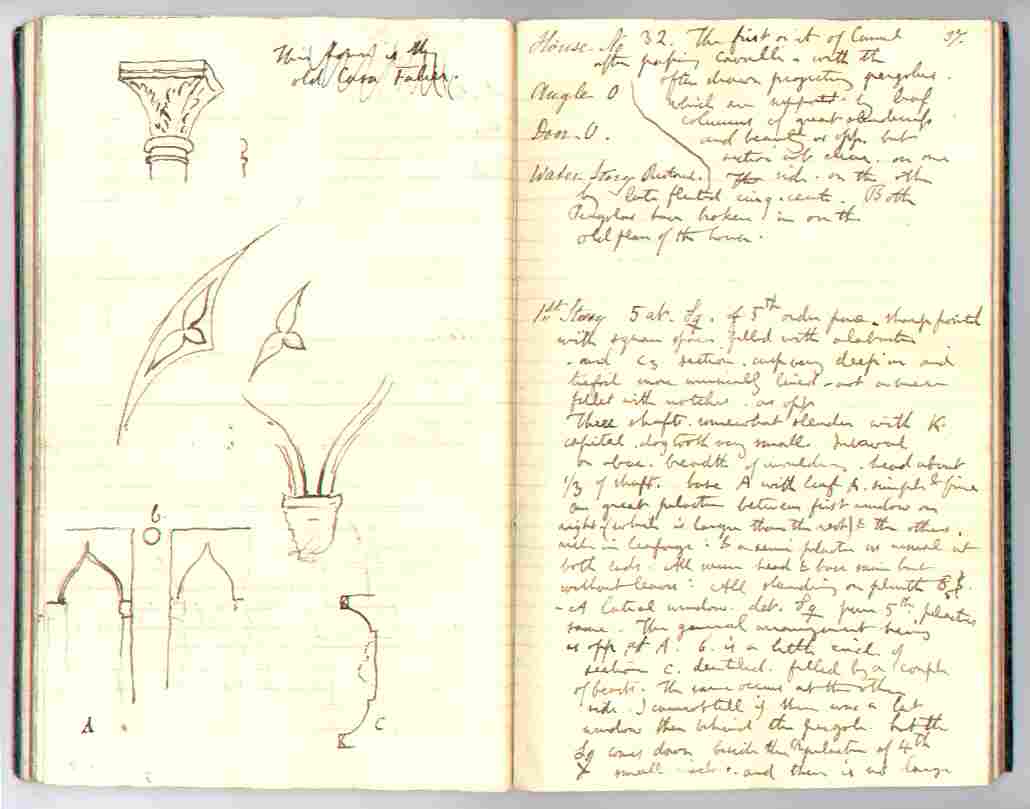 This house is the
old Casa Falier.
b
A
C
House No 32. The first on it of Canal
37.
after passing Cavalli - with the
often drawn projecting pergolas.
which are supported by leaf
Angle 0
columns of great slenderness
and beauty as opp. but
Door. 0.
section not clear. on one
Water Story Restored. The side. on the other
by late fluted cinq-cento. Both
Pergolas have broken in on the
old plan of the house.
1st Story 5 at. Lq. of 5th order pure. sharp pointed
with square spaces filled with alabaster
- and C3 section. cusp very deep in and
trefoil more unusually lined - not a mere
fillet with notches. as opp
Three shafts. somewhat slender with K.
capital. dogtooth very small.
on abac. breadth of moulding. head about
1/3 of shaft. base A with leaf p. simple & fine
a great pilaster between first window on
right (which is larger than the rest) & the others.
rich in leafage: & a semi pilaster as usual at
both ends. All same head & base same but
without leaves: All standing on plinth
- A lateral window. det. Lq pure 5th, pilasters
same. The general arrangement being
as opp. at A. b. is a little circle of
section c. dentiled. filled by a couple
of beasts. The same occurs at the other
side. I cannot tell if there was a lat
window then behind the pergola but the
Lq comes down beside the pilaster of 4th
X small and there is no large